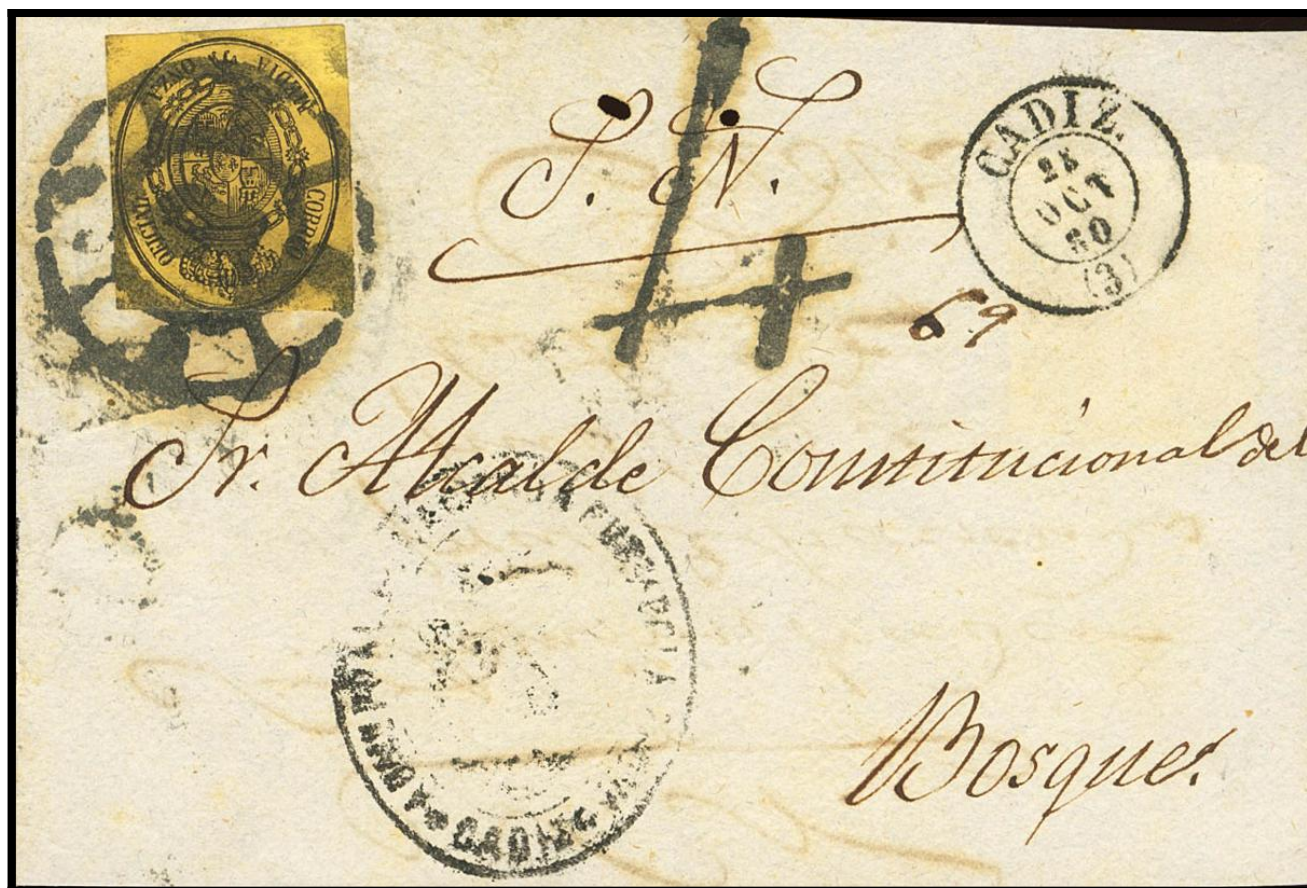 CORREO OFICIAL MEDIA ONZA
S. N.
4
CADIZ.
OCT
60
(3)
69
Sr. Alcalde Constitucional del
Bosque.
CADIZ